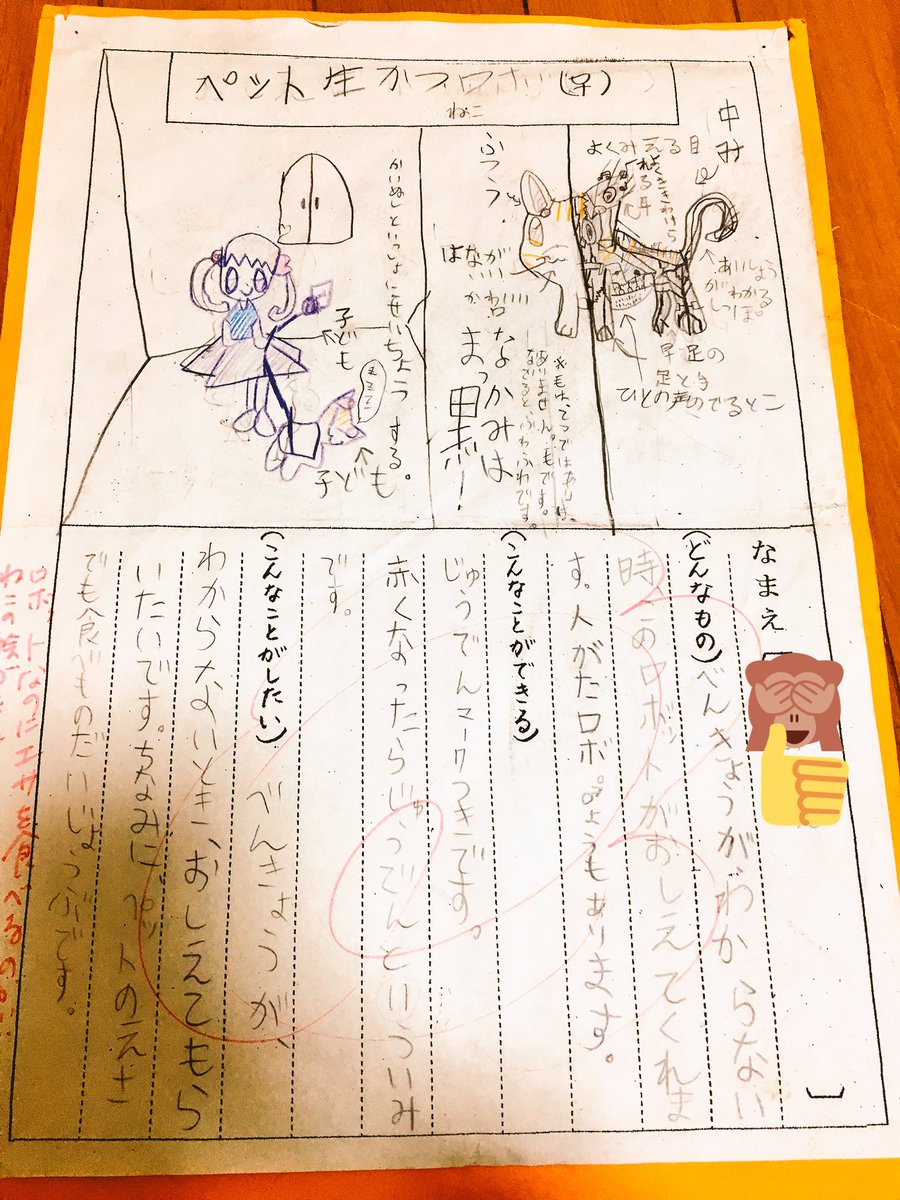 ペット生かつロボ(子)
ねこ
中み
よくみえる目
よくききわけられる耳
あいしょうがわかるしっぽ。
早足の足とき
ひとの声のでるとこ
ふつう。
はながいい
なかみは
まっ黒！
かいぬしといっしょにせいちょうする。
子ども
子ども。
なまえ
(どんなもの)べんきょうがわからない
時、このロボットがおしえてくれま
す。人がたロボ。のようもあります。
(こんなことができる)
じゅうでんマークつきです。
赤くなったらじゅうでんといういみ
です。
(こんなことがしたい) べんきょうが、
わからないとき、おしえてもら
いたいです。ちなみにペットのえさ
でも食べものだいじょうぶです。
ロボットなのにエサを食べるの